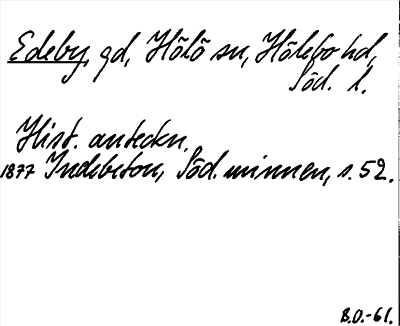 Edeby, gd, Hölö sn, Hölebo hd,
Söd. l.
Hist. anteckn.
1877 Indebetou, Söd. minnen, s. 52.
B.O.-61.